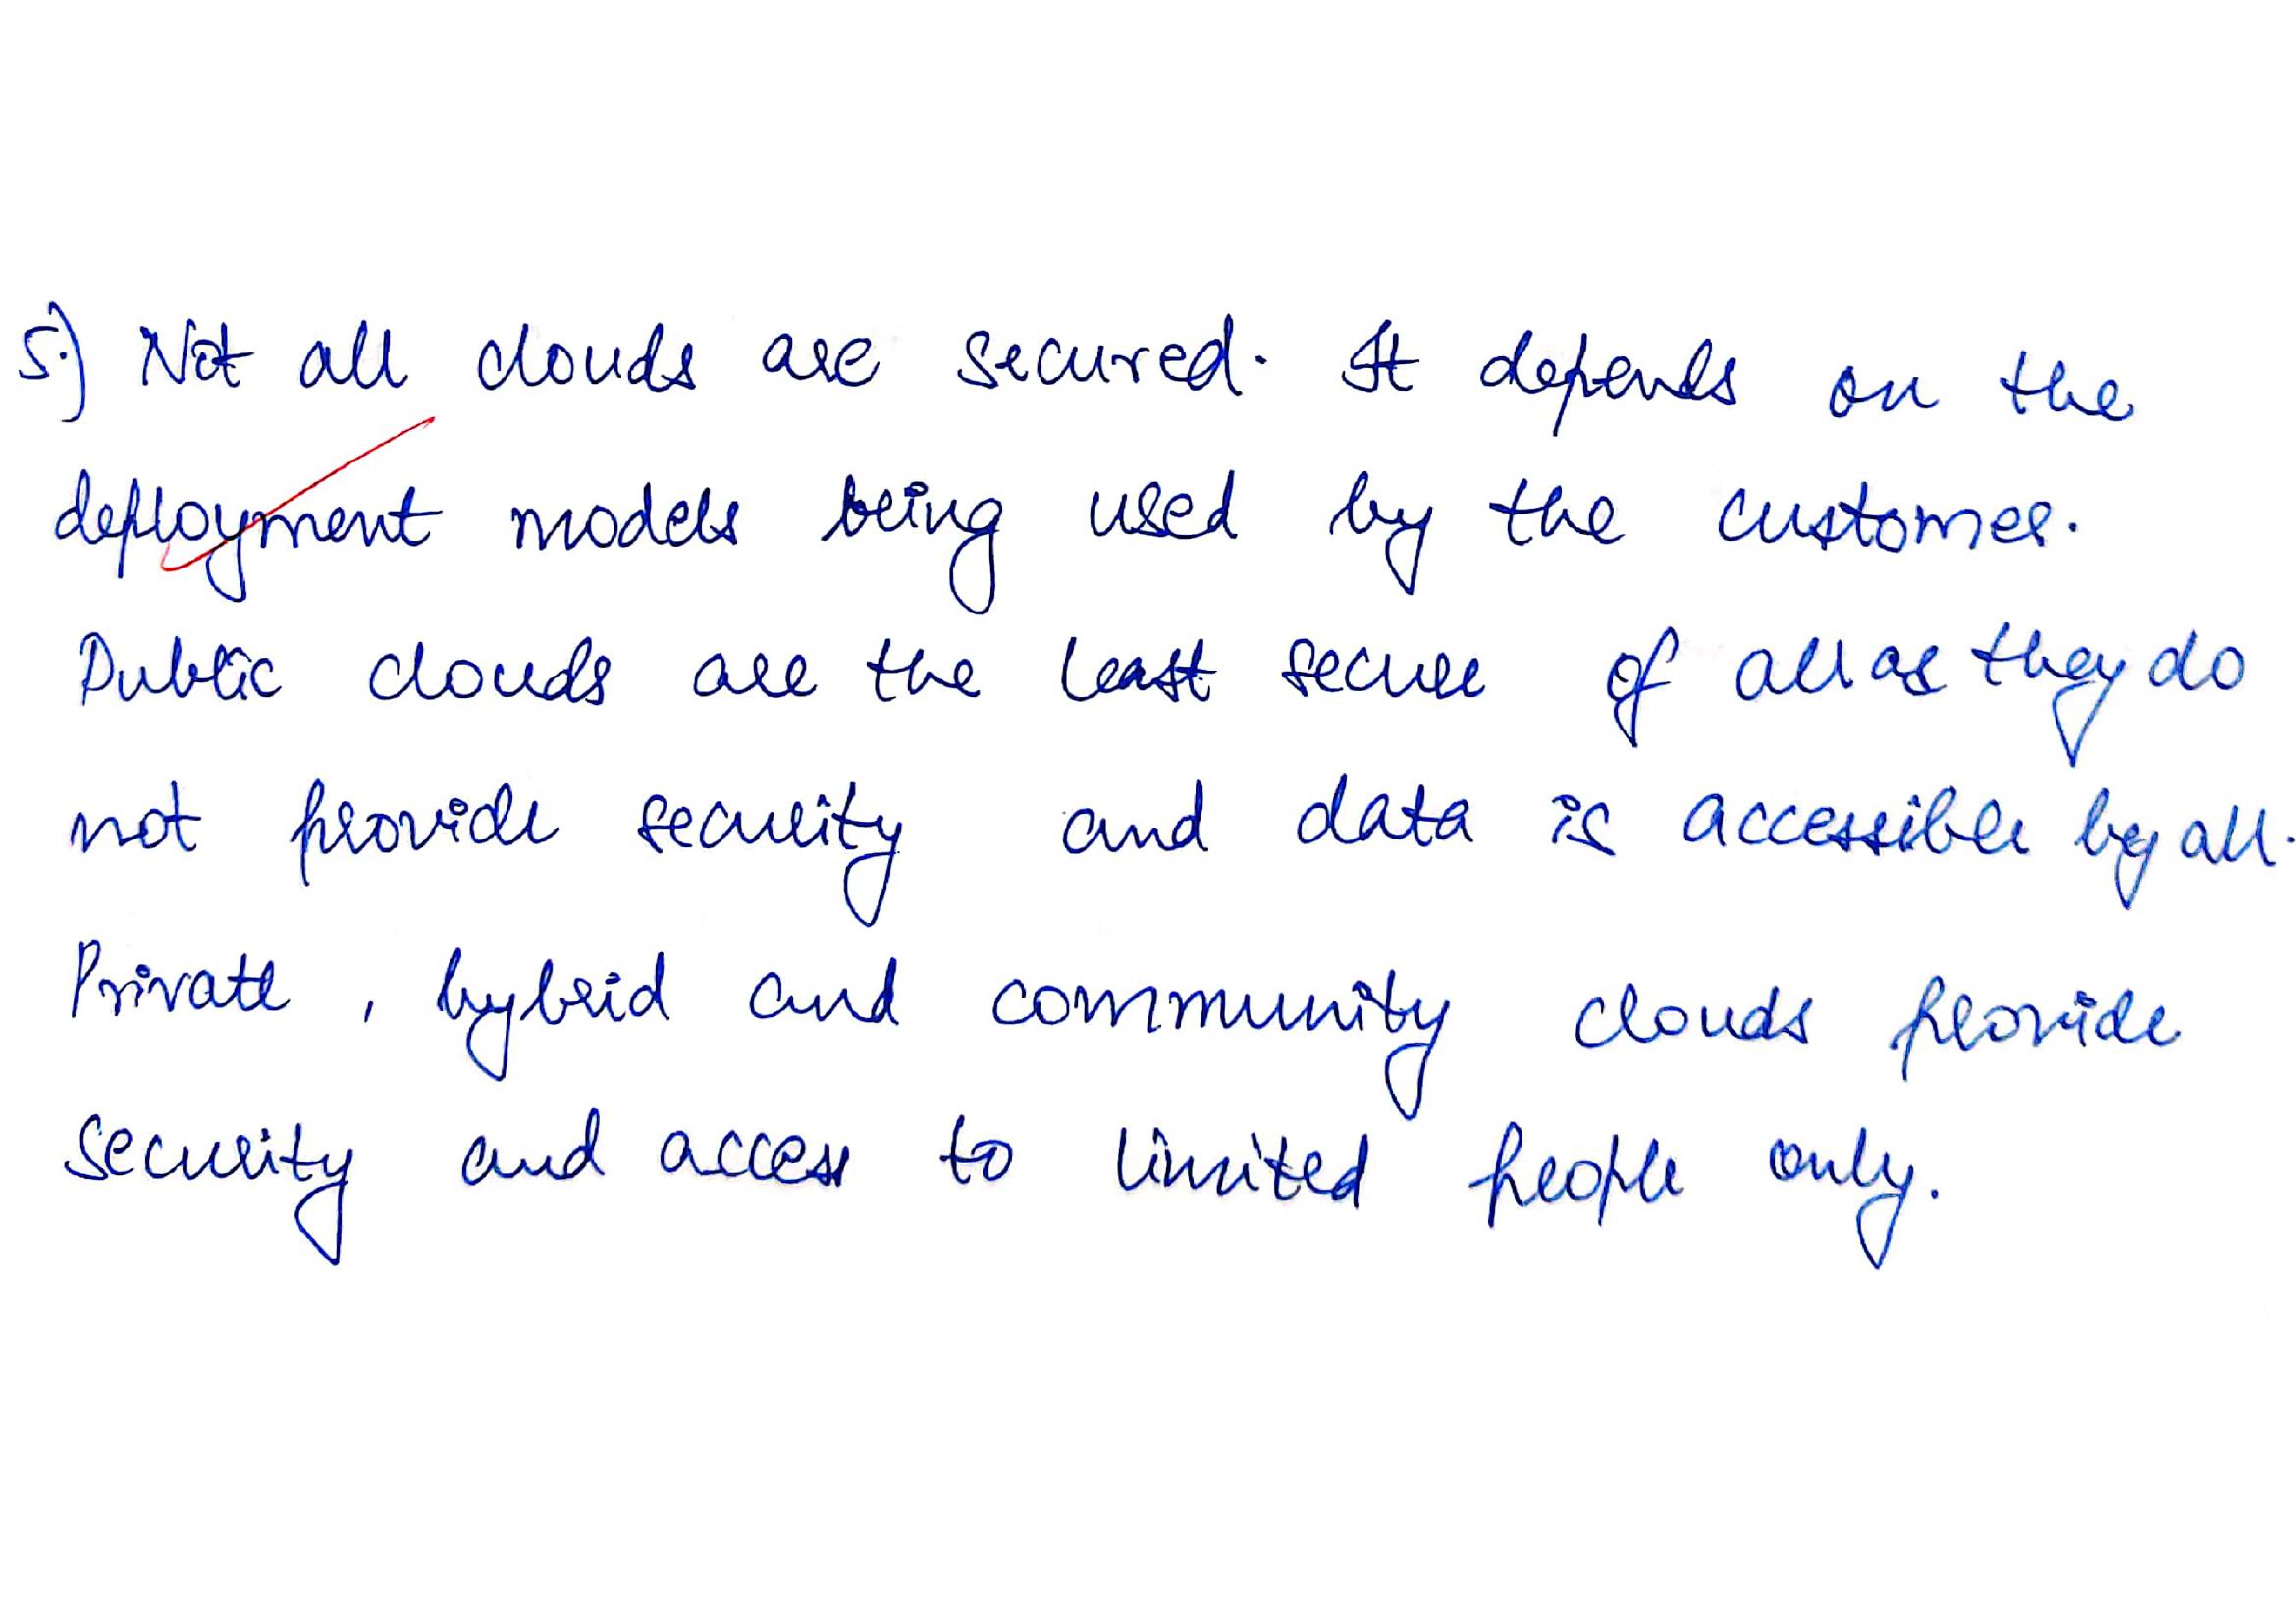 5.) Not all clouds are secured. It depends on the
deployment models being used by the customer.
Public clouds are the least secure of all as they do
not provide security and data is accessible by all.
Private, hybrid and community clouds provide
security and access to limited people only.